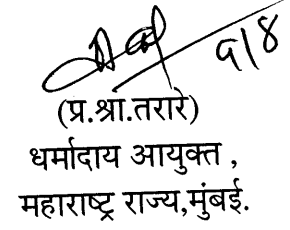 ५/४
(प्र.श्रा.तरारे)
धर्मादाय आयुक्त ,
महाराष्ट्र राज्य,मुंबई.